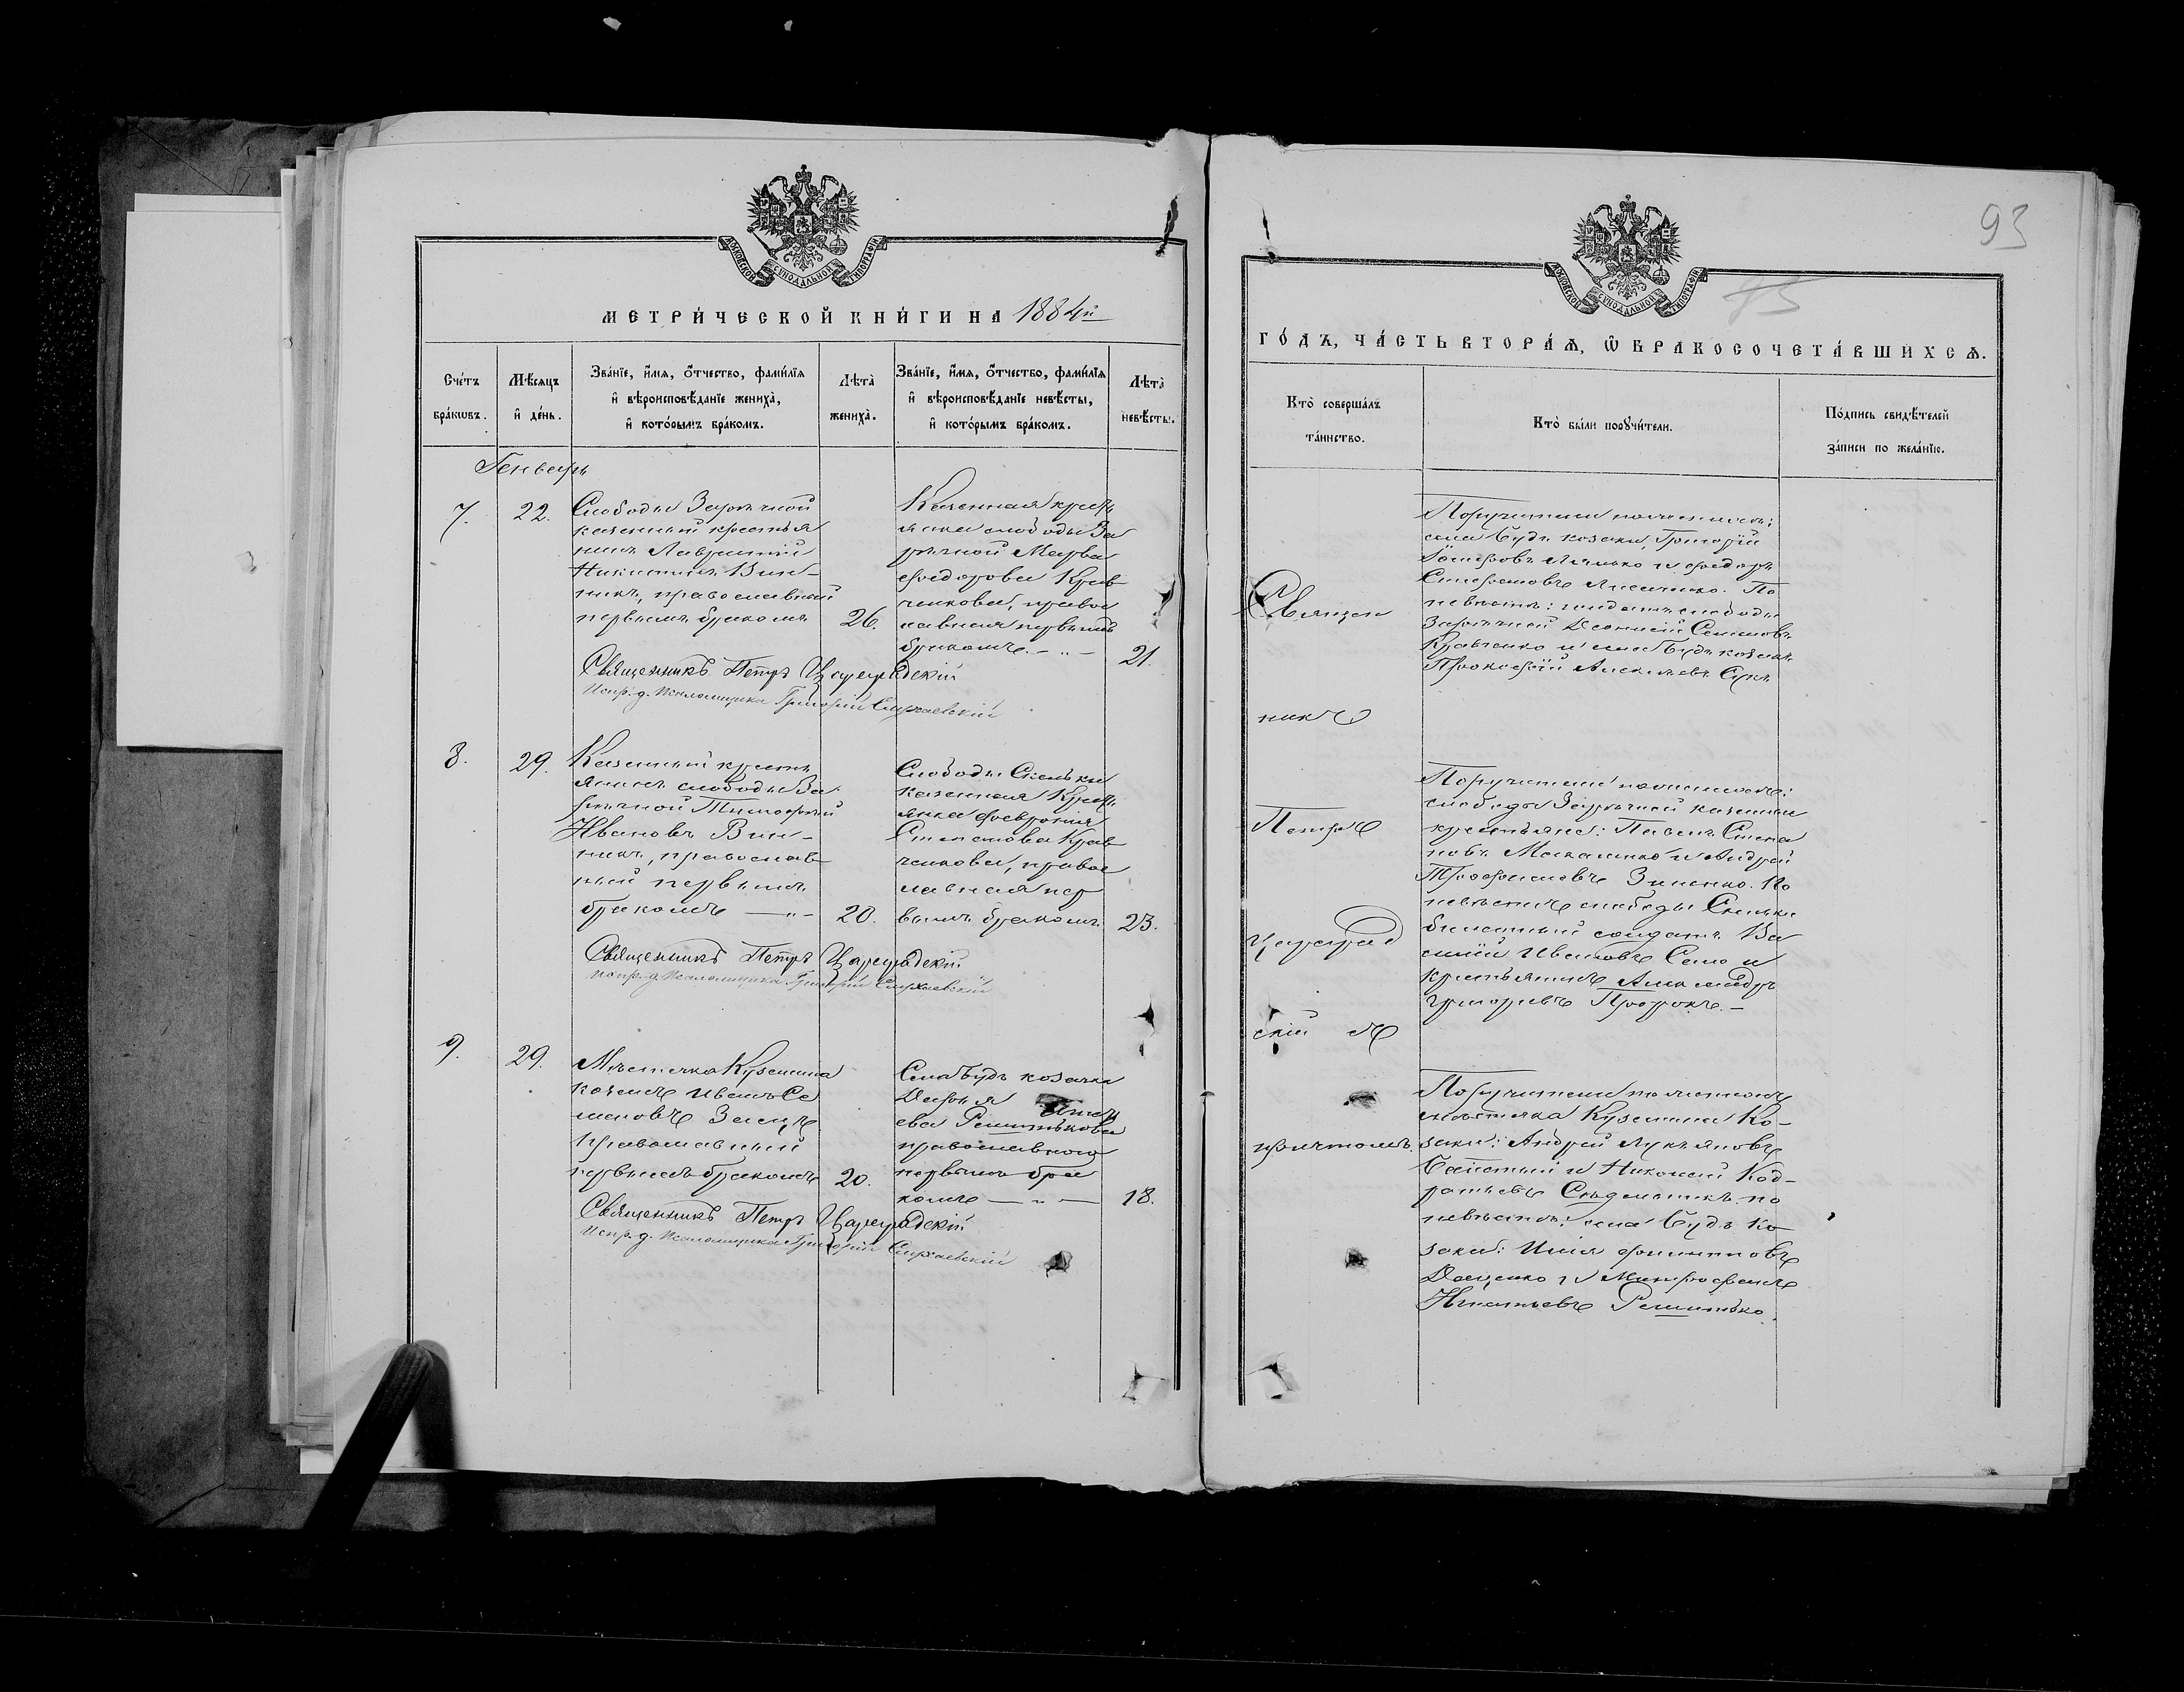 93
МОСКОВСКОЙ СѴНОДАЛЬНОЙ ТИПОГРАФІИ
МЕТРИ́ЧЕСКОЙ КНИ́ГИ НА 1884й
Сче́тъ бра́кωвъ.
Мѣ́сяцъ и҆ де́нь.
Зва́нїе, и҆́мя, ѻ҆́тчество, фами́лїя
и҆ вѣроисповѣ́данїе жениха̀,
и҆ кото́рымъ бра́комъ.
Лѣта̀ жениха̀.
Зва́нїе, и҆́мя, ѻ҆́тчество, фами́лїя
и҆ вѣроисповѣ́данїе невѣ́сты,
и҆ кото́рымъ бра́комъ.
Лѣта̀ невѣ́сты.
Генварь
7.
22.
Слободы Зарѣчной
казенный крестья
нинъ Лаврентій
Никитинъ Вин-
никъ, православный
первымъ бракомъ
26.
Казенная крест
янка слободы За
рѣчной Марѳа
Ѳеодорова Крав
ченкова, право
славная первымъ
бракомъ. — „ —
21.
Священникъ Петръ Цареградскій
Испр. д. Псаломщика Григорій
8.
29.
Казенный кресть
янинъ слободы За
рѣчной Тимофей
Ивановъ Вин-
никъ, православ
ный первымъ
бракомъ — „ —
20.
Слободы Сеньки
казенная Крест
янка Феврония
Степанова Крав
ченкова, право
славная пер
вымъ бракомъ.
23.
Священникъ Петръ Цареградскій
Испр. д. Псаломщика Григорій
9.
29.
Мѣстечка Куземина
козакъ Иванъ Се
меновъ Заецъ
православный
первымъ бракомъ
20.
Села Будъ козачка
Дарья
ева Решитькова
православного
первымъ бра
комъ — „ —
18.
Священникъ Петръ Цареградскій
Испр. д. Псаломщика Григорій
МОСКОВСКОЙ СѴНОДАЛЬНОЙ ТИПОГРАФІИ
ГО́ДЪ, ЧА́СТЬ ВТОРА́Ѧ, Ѡ҆ БРАКОСОЧЕТА́ВШИХСѦ.
Кто̀ соверша́лъ
та́инство.
Кто̀ бы́ли порꙋчи́тели.
По́дпись свидѣ́телей
за́писи по жела́нїю.
Священ
никъ
Петръ
Цареград
скій съ
причтомъ.
Поручители по женихѣ:
села Будъ козаки, Григорій
и Ѳеодоръ
По
невѣстѣ: солдатъ слободы
Зарѣчной Семеновъ
Кравченко и села Будъ козакъ
Прокофій
Поручители по женихѣ:
слободы Зарѣчной казенные
крестьяне: Павелъ Степа
новъ и Андрей
Трофимовъ Зиненко. По
невѣстѣ слободы Сеньки
билетный солдатъ Ва
силій Ивановъ Село и
крестьянинъ Александръ
Григорьевъ —
Поручители по женихѣ
мѣстечка Куземина Ко-
заки: Андрей Лукьяновъ
и Николай Код-
ратьевъ по
невѣстѣ: села Будъ ко
заки: Илія Филиповъ
Даценко и Митрофанъ
Игнатьевъ Решитько.